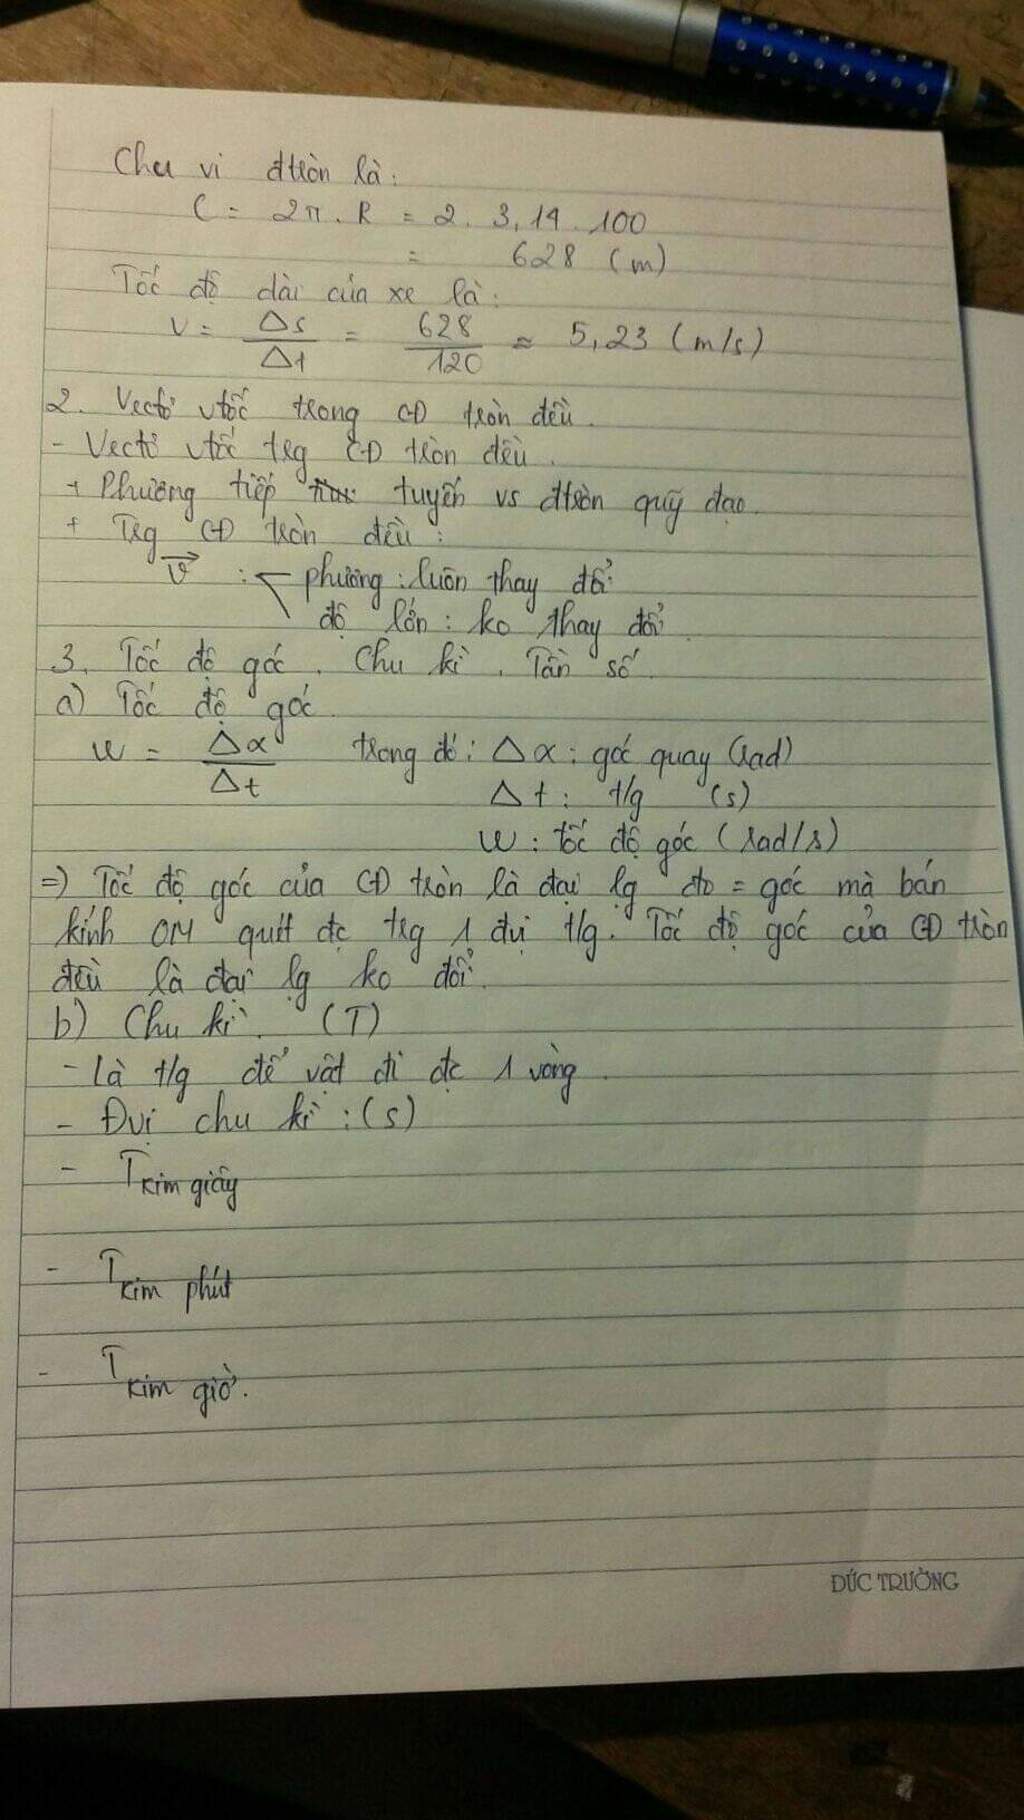 Chu vi đtròn là:
C = 2π. R = 2. 3,14. 100
= 628 (m)
Tốc độ dài của xe là:
v = Δs/Δt = 628/120 ≈ 5,23 (m/s)
2. Vectơ vtốc trong CĐ tròn đều.
- Vectơ vtốc trg CĐ tròn đều.
+ Phương tiếp tuyến vs đtròn quỹ đạo.
+ Trg CĐ tròn đều:
v⃗ : phương: luôn thay đổi
độ lớn: ko thay đổi.
3. Tốc độ góc. Chu kì. Tần số.
a) Tốc độ góc.
ω = Δα/Δt trong đó: Δα: góc quay (rad)
Δt: t/g (s)
ω: tốc độ góc (rad/s)
=) Tốc độ góc của CĐ tròn là đại lg đo = góc mà bán
kính OM quét đc trg 1 đvị t/g. Tốc độ góc của CĐ tròn
đều là đại lg ko đổi.
b) Chu kì. (T)
- Là t/g để vật đi đc 1 vòng.
- Đvị chu kì: (s)
- T kim giây
- T kim phút
- T kim giờ.
ĐỨC TRƯỜNG